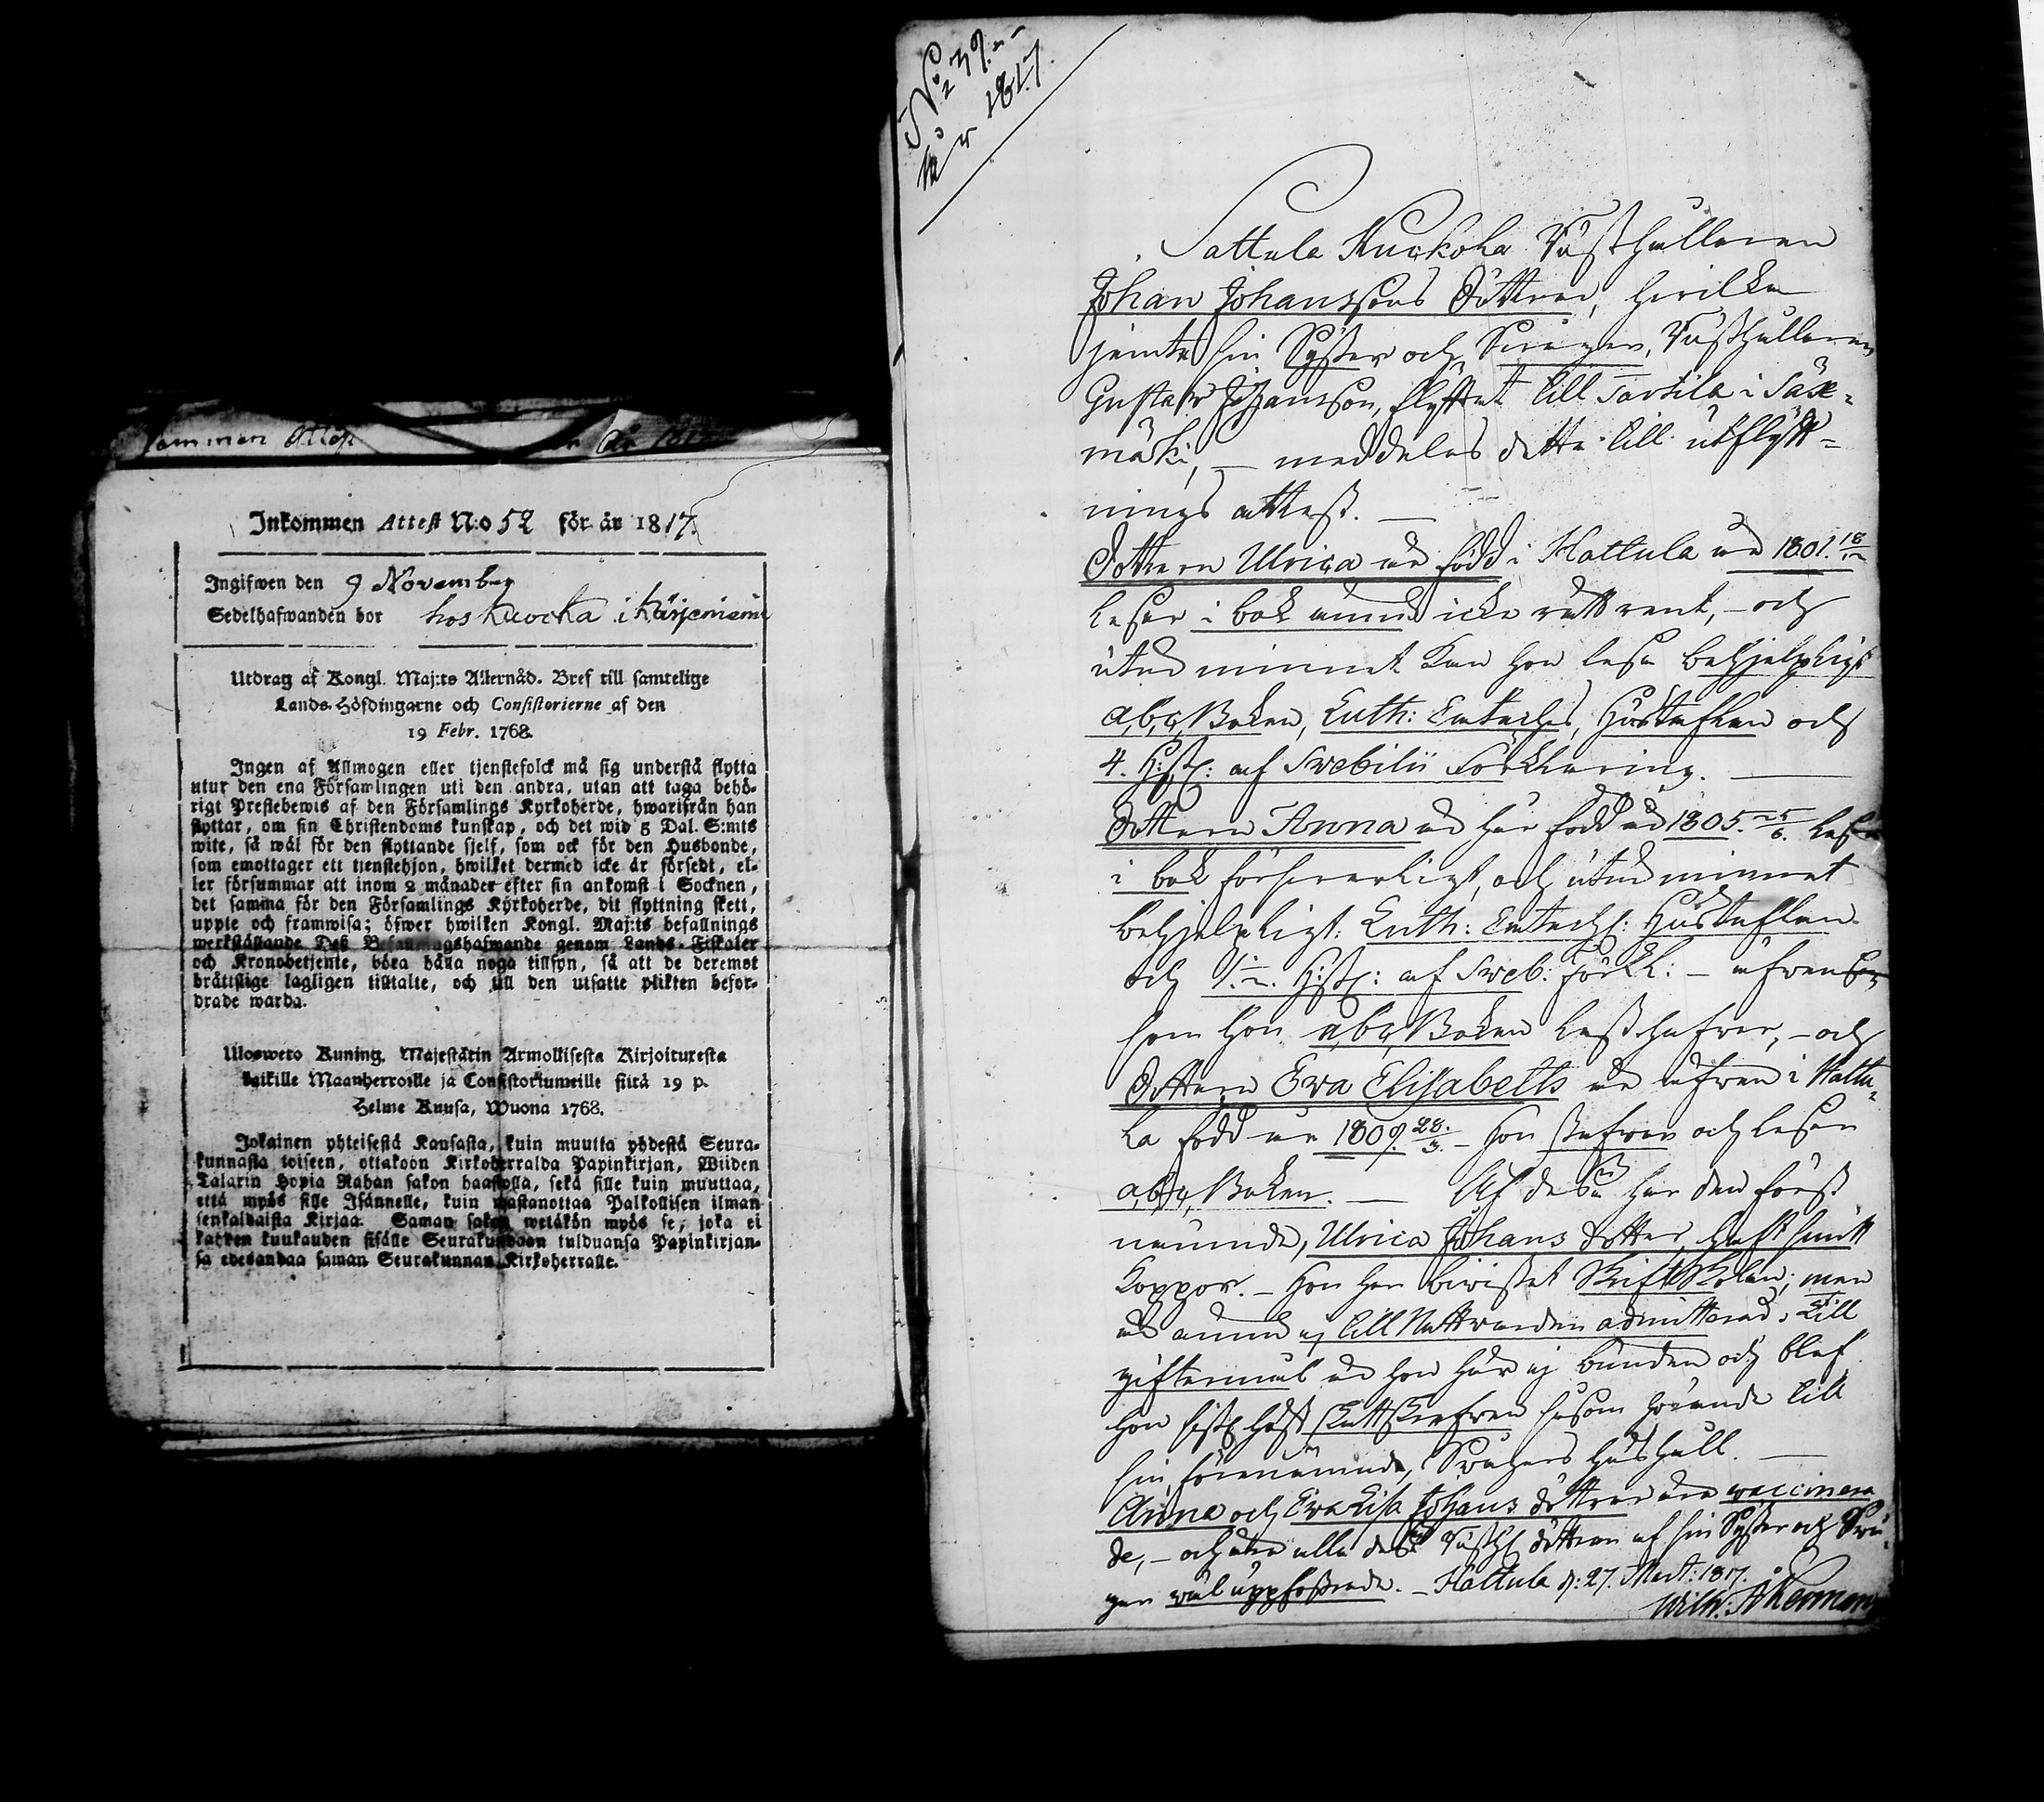 Inkommen Attest N:o 52 för år 1817.
Ingifwen den 9 November
Sedelhafwanden bor hos Kuocka i Kärjeniemi
Utdrag af Kongl. Maj:ts Allernåd. Bref till samtelige
Lands-Höfdingarne och Consistorierne af den
19 Febr. 1768.
Ingen af Allmogen eller tjenstefolck må sig understå flytta
utur den ena Församlingen uti den andra, utan att taga behö-
rigt Prestebewis af den Församlings Kyrkoherde, hwarifrån han
flyttar, om sin Christendoms kunskap, och det wid 5 Dal. S:mts
wite, så wäl för den flyttande sjelf, som ock för den Husbonde,
som emottager ett tjenstehjon, hwilket dermed icke är försedt, el-
ler försummar att inom 2 månader efter sin ankomst i Socknen,
det samma för den Församlings Kyrkoherde, dit flyttning skett,
uppte och framwisa; öfwer hwilken Kongl. Maj:ts befallnings
werkställande Deß Befallningshafwande genom Lands-Fiskaler
och Kronobetjente, böra hålla noga tillsyn, så att de deremot
brättslige lagligen tilltalte, och till den utsatte plikten befor-
drade warda.
Uloswero Kuning. Majestätin Armollisesta Kirjoituxesta
kaikille Maanherroille ja Consistoriumeille siitä 19 p.
Helme Kuusa, Wuona 1768.
Jokainen yhteisestä Kansasta, kuin muutta yhdestä Seura-
kunnasta toiseen, ottakoon Kirkoherralda Papinkirjan, Wiiden
Talarin Hopia Rahan sakon haastolla, sekä sille kuin muuttaa,
että myös sille Isännelle, kuin wastanottaa Palkollisen ilman
senkaldaista Kirjaa. Saman sakon wetäkön myös se, joka ei
kahden kuukauden sisälle Seurakundaan tulduansa Papinkirjan-
sa edesandaa saman Seurakunnan Kirkoherralle.
N:o 39.
år 1817.
Sattula Kuckola Rusthållaren
Johan Johanssons döttrar, hvilka
jemte sin Syster och Svåger, Rusthållaren
Gustaf Johansson, flyttat till Tarttila i Sääx-
mäki, — meddelas detta till utflytt-
nings attest. —
Dottern Ulrica är född i Hattula år 1801. 18/12
läser i bok ännu icke rätt rent, — och
utur minnet kan hon läsa behjelpligt
abc, Boken, Luth: Cateches, Hustaflan och
4. Hst: af Svebilii Förklaring. —
Dottern Anna är här född år 1805. 25/6. läser
i bok försvarligt, och utur minnet
behjelpligt Luth: Catech: Hustaflan
och 1. 2. Hst: af Sveb: Förkl: — äfven
som hon abc, Boken läst hafver, — och
Dottern Eva Elisabeth är äfven i Hattu-
la född år 1809. 28/3. — Hon stafver och läser
abc, Boken. — Af dessa har den först
nämnde, Ulrica Johans dotter, haft sina
Koppor. — Hon har bivistat Skriftskolan; men
är ännu ej till Nattvarden admitterad. Till
giftermål är hon här ej bunden och blef
hon sistl. höst skattskrefven såsom hörande till
sin, förenämnde, Svågers Hushåll. —
Anna och Eva Lisa Johans döttrar äro vaccinera
de, — och äro alla dessa Rusth: döttrar af sin Syster och Svå-
ger väl uppfostrade. — Hattula d: 27. Mart: 1817.
Wilh: Åkerman